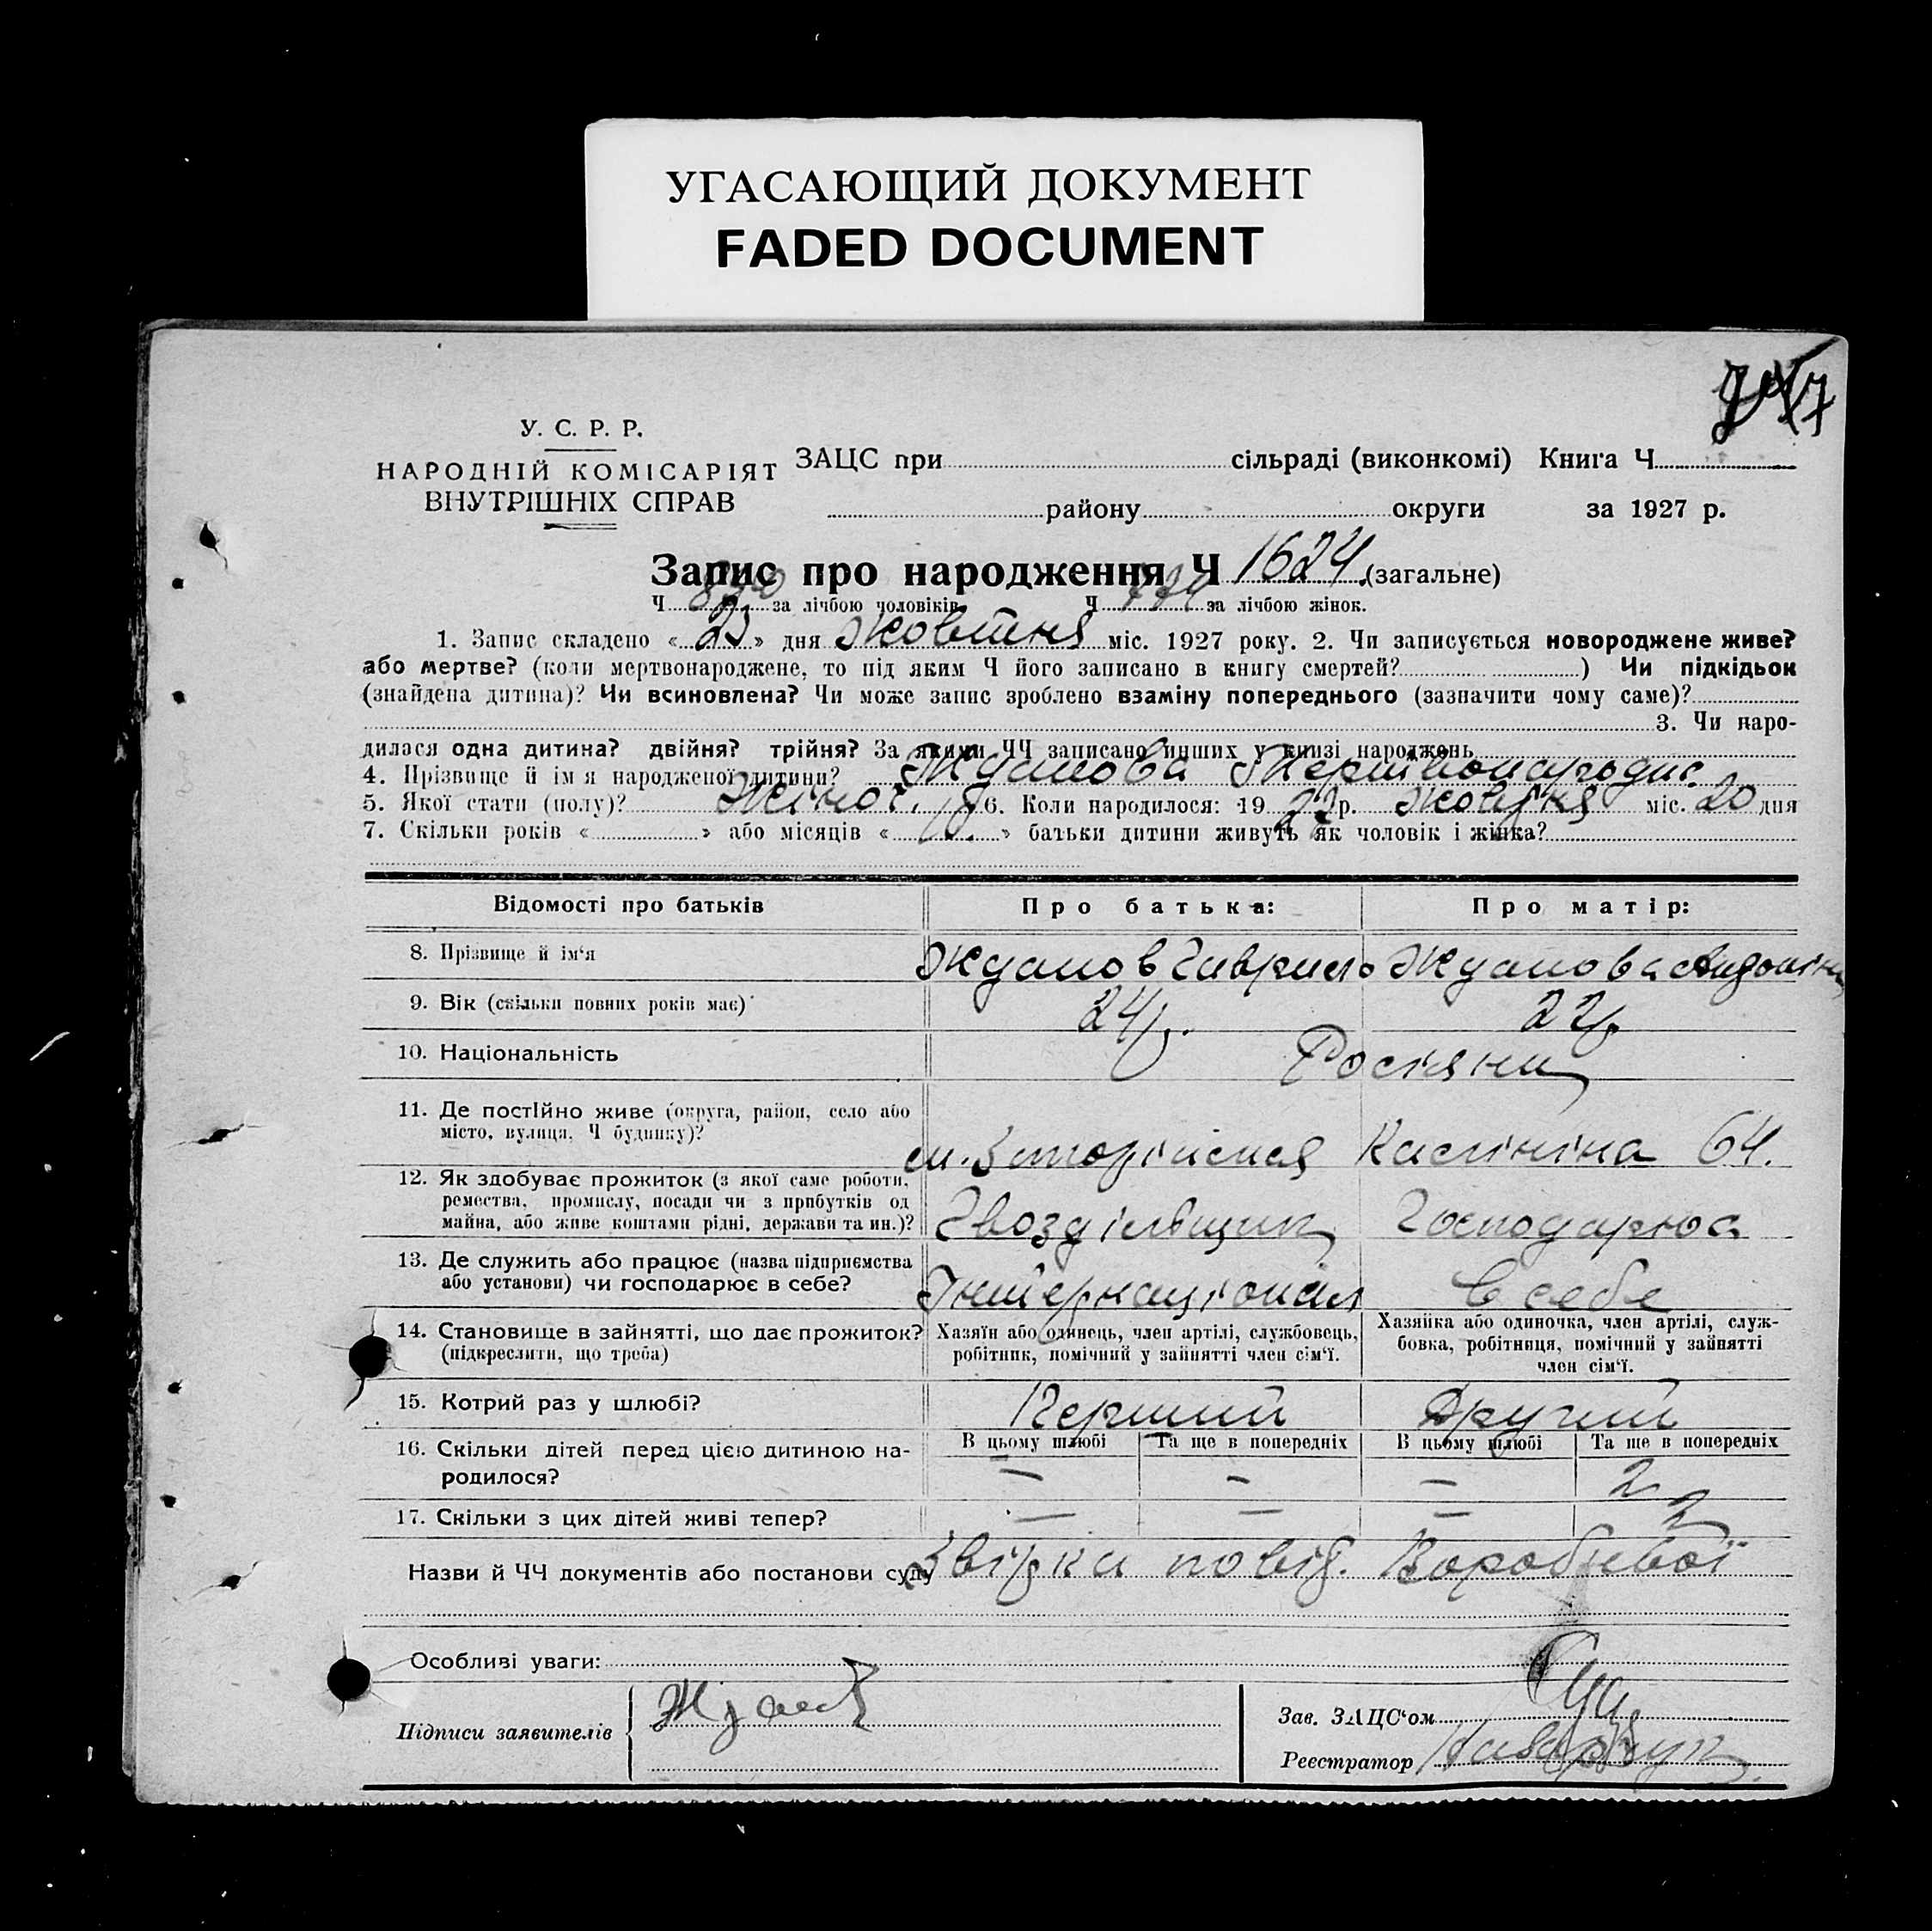 УГАСАЮЩИЙ ДОКУМЕНТ
FADED DOCUMENT
У. С. Р. Р.
НАРОДНІЙ КОМІСАРІЯТ
ВНУТРІШНІХ СПРАВ
ЗАЦС при сільраді (виконкомі) Книга Ч
району округи за 1927 р.
Запис про народження Ч 1624 (загальне)
Ч за лічбою чоловіків Ч 774 за лічбою жінок.
1. Запис складено « » дня Жовтня міс. 1927 року. 2. Чи записується новороджене живе?
або мертве? (коли мертвонароджене, то під яким Ч його записано в книгу смертей? ) Чи підкідьок
(знайдена дитина)? Чи всиновлена? Чи може запис зроблено взаміну попереднього (зазначити чому саме)?
3. Чи наро-
дилася одна дитина? двійня? трійня? За якими ЧЧ записано инших у книзі народжень
4. Прізвище й ім'я народженої дитини? Жданова Мертвонародж.
5. Якої стати (полу)? Жіноч. 6. Коли народилося: 19 27 р. Жовтня міс. 20 дня
7. Скільки років « » або місяців « » батьки дитини живуть як чоловік і жінка?
Відомості про батьків
Про батька:
Про матір:
8. Прізвище й ім'я Жданов Гаврило Жданова
9. Вік (скільки повних років має) 24 р. 22 р.
10. Національність Росіяни
11. Де постійно живе (округа, район, село або
місто, вулиця, Ч будинку)? Калініна 64.
12. Як здобуває прожиток (з якої саме роботи,
ремества, промислу, посади чи з прибутків од
майна, або живе коштами рідні, держави та ин.)? Гвозділвщик Господарюа
13. Де служить або працює (назва підприємства
або установи) чи господарює в себе? Інтернаціонал в себе
14. Становище в зайнятті, що дає прожиток?
(підкреслити, що треба)
Хазяїн або одинець, член артілі, службовець,
робітник, помічний у зайнятті член сім'ї.
Хазяйка або одиночка, член артілі, служ-
бовка, робітниця, помічний у зайнятті
член сім'ї.
15. Котрий раз у шлюбі? Перший Другий
16. Скільки дітей перед цією дитиною на-
родилося?
В цьому шлюбі Та ще в попередніх В цьому шлюбі Та ще в попередніх
— — — 2
17. Скільки з цих дітей живі тепер? — — — 2
Назви й ЧЧ документів або постанови суду Звірка по від. Воробйвої
Особливі уваги:
Підписи заявителів
Зав. ЗАЦС'ом
Реєстратор